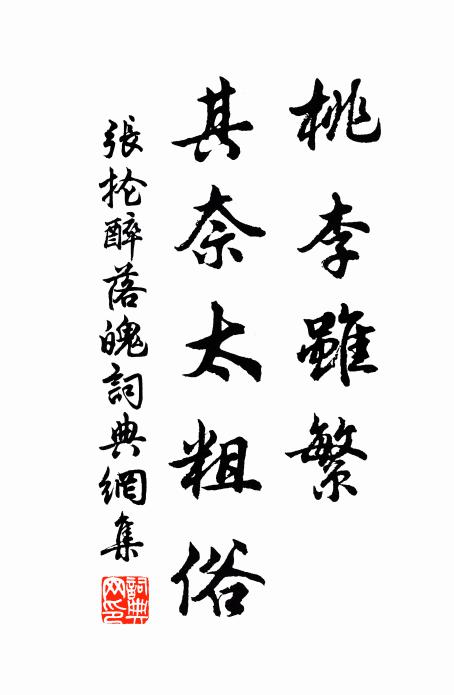 桃李雖繁
其奈太粗俗
張抡醉落魄詞典網集
詞典
网印